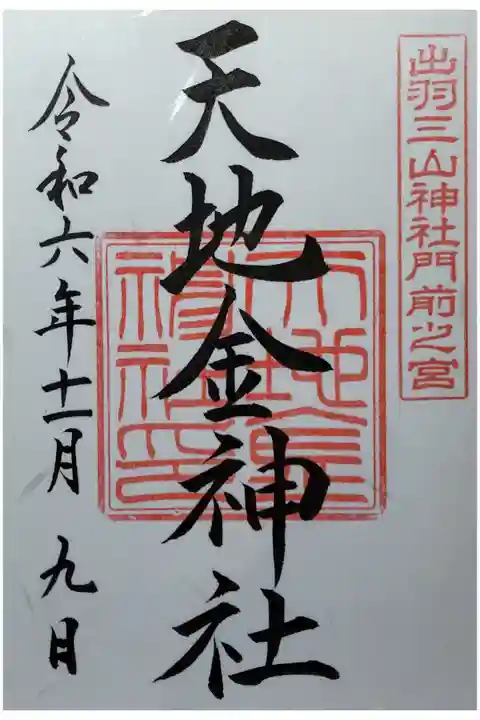 出羽三山神社門前之宮
天地金神社
天地金神社印
令和六年十一月 九日